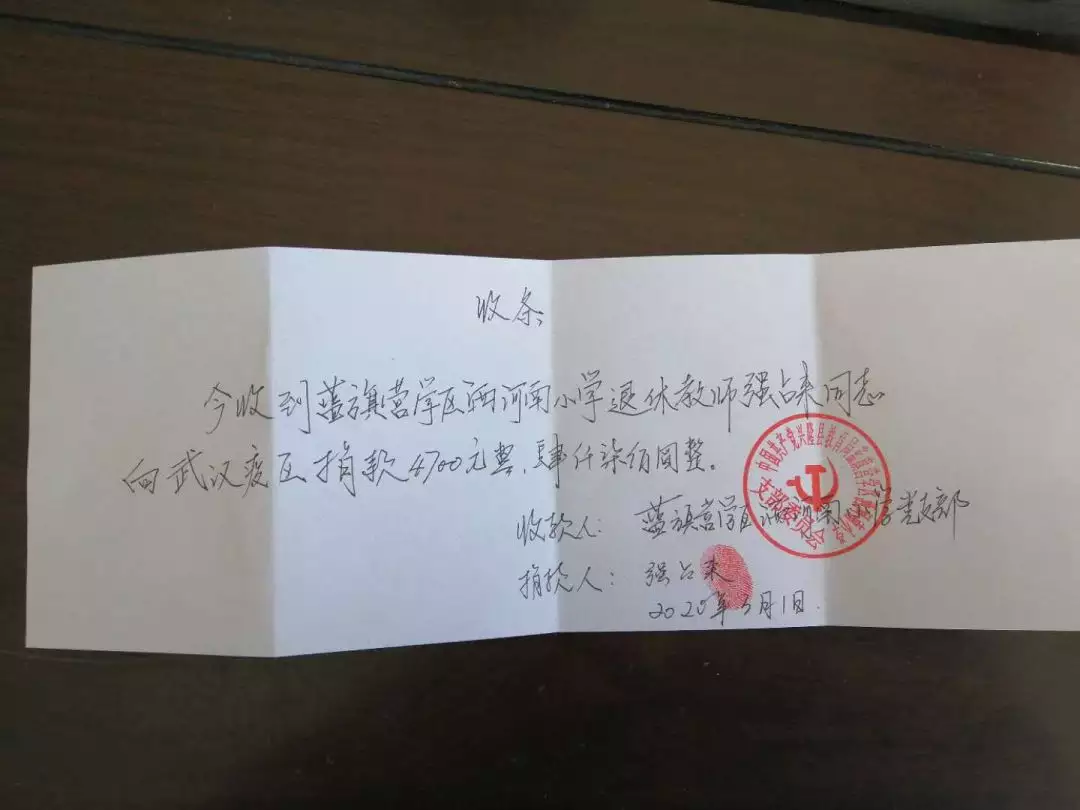 收条
今收到蓝旗营学区西河南小学退休教师强占来同志
向武汉疫区捐款4700元整,肆仟柒佰圆整。
收款人:蓝旗营学区西河南小学党支部
捐款人:强占来
2020年3月1日.
中国共产党兴隆县教育局蓝旗营学区西河南小学
支部委员会